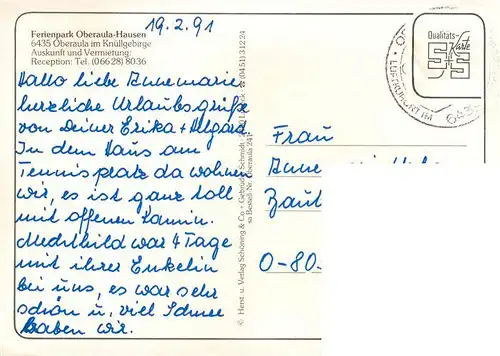 19.2.91
Ferienpark Oberaula-Hausen
6435 Oberaula im Knüllgebirge
Auskunft und Vermietung:
Reception: Tel. (06628) 8036
Hallo liebe Annemarie
herzliche Urlaubsgrüße
von Deiner Erika + Helgard.
In dem Haus am
Tennisplatz da wohnen
wir, es ist ganz toll
mit offenen Kamin.
Mechthild war 4 Tage
mit ihrer Enkelin
bei uns, es war sehr
schön u. viel Schnee
haben wir.
© Herst. u. Verlag Schöning & Co + Gebrüder Schmidt
(0451) 31224
Bestell-Nr. Oberaula 241
Qualitäts-
Karte
LUFTKURORT IM
6435
Frau
Zaut
O-80